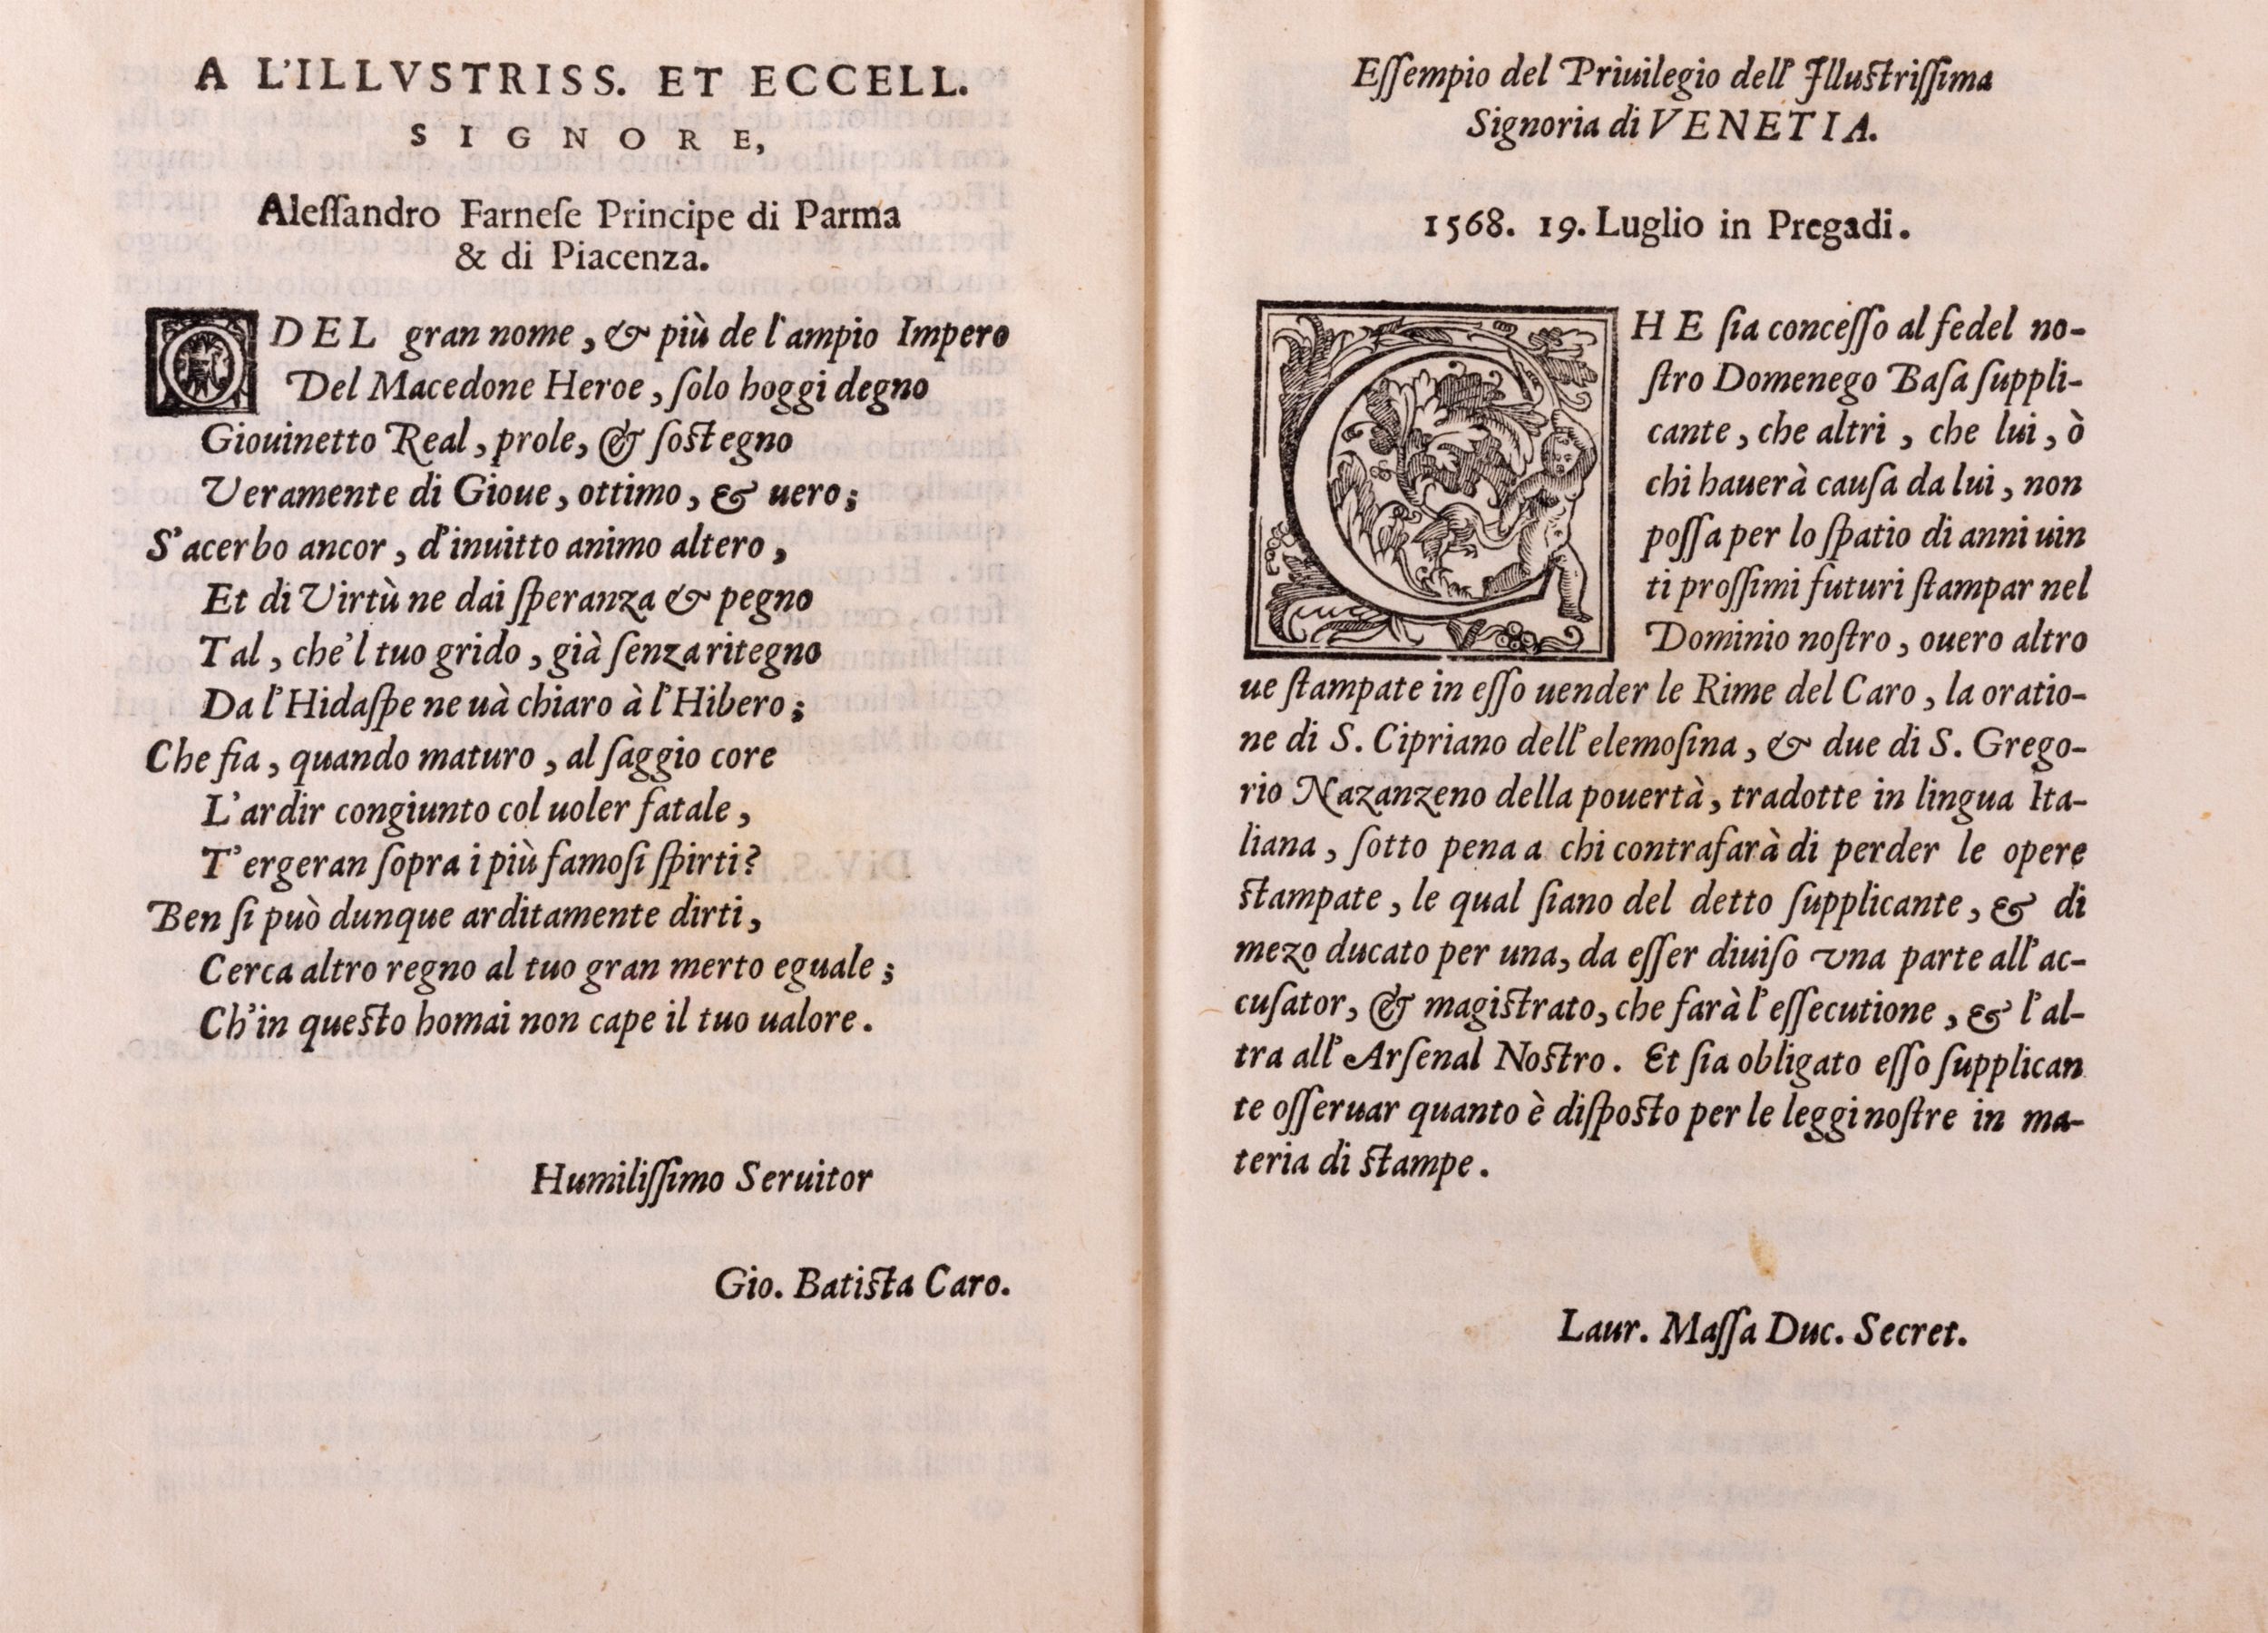 A L'ILLVSTRISS. ET ECCELL.
SIGNORE,
Aleſſandro Farneſe Principe di Parma
& di Piacenza.
O DEL gran nome, & più de l'ampio Impero
Del Macedone Heroe, ſolo hoggi degno
Giouinetto Real, prole, & ſoſtegno
Veramente di Gioue, ottimo, & uero;
S'acerbo ancor, d'inuitto animo altero,
Et di Virtù ne dai ſperanza & pegno
Tal, che'l tuo grido, già ſenza ritegno
Da l'Hidaſpe ne uà chiaro à l'Hibero;
Che fia, quando maturo, al ſaggio core
L'ardir congiunto col uoler fatale,
T'ergeran ſopra i più famoſi ſpirti?
Ben ſi può dunque arditamente dirti,
Cerca altro regno al tuo gran merto eguale;
Ch'in queſto homai non cape il tuo ualore.
Humiliſſimo Seruitor
Gio. Batiſta Caro.
Eſſempio del Priuilegio dell'Illuſtriſſima
Signoria di VENETIA.
1568. 19. Luglio in Pregadi.
CHE ſia conceſſo al fedel no-
ſtro Domenego Baſa ſuppli-
cante, che altri, che lui, ò
chi hauerà cauſa da lui, non
poſſa per lo ſpatio di anni uin
ti proſſimi futuri ſtampar nel
Dominio noſtro, ouero altro
ue ſtampate in eſſo uender le Rime del Caro, la oratio-
ne di S. Cipriano dell'elemoſina, & due di S. Grego-
rio Nazanzeno della pouertà, tradotte in lingua Ita-
liana, ſotto pena a chi contrafarà di perder le opere
ſtampate, le qual ſiano del detto ſupplicante, & di
mezo ducato per una, da eſſer diuiſo vna parte all'ac-
cuſator, & magiſtrato, che farà l'eſſecutione, & l'al-
tra all'Arſenal Noſtro. Et ſia obligato eſſo ſupplican
te oſſeruar quanto è diſpoſto per le leggi noſtre in ma-
teria di ſtampe.
Laur. Maſſa Duc. Secret.